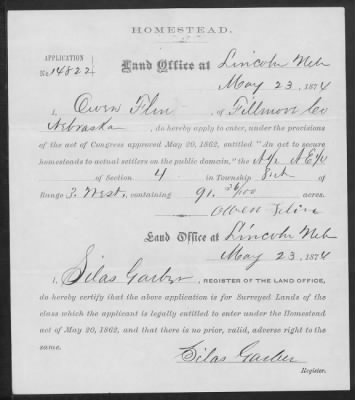 HOMESTEAD.
APPLICATION
No. 14822
Land Office at Lincoln Neb
May 23, 1874
I, Owen Flin, of Fillmore Co
Nebraska, do hereby apply to enter, under the provisions
of the act of Congress approved May 20, 1862, entitled "An act to secure
homesteads to actual settlers on the public domain," the N/2 N E/4
of Section 4 in Township
Range 3. West, containing 91. 36/100 acres.
Owen Flin
Land Office at Lincoln Neb
May 23, 1874
I, Silas Garber, REGISTER OF THE LAND OFFICE,
do hereby certify that the above application is for Surveyed Lands of the
class which the applicant is legally entitled to enter under the Homestead
act of May 20, 1862, and that there is no prior, valid, adverse right to the
same.
Silas Garber
Register.